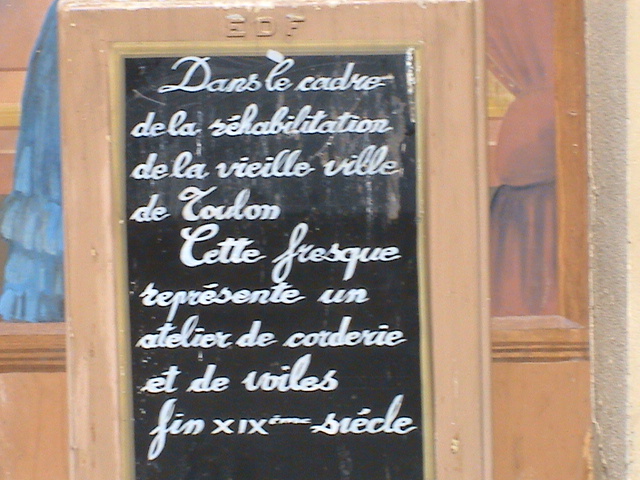 EDF
Dans le cadre
de la réhabilitation
de la vieille ville
de Toulon
Cette fresque
représente un
atelier de corderie
et de voiles
fin XIXème siécle